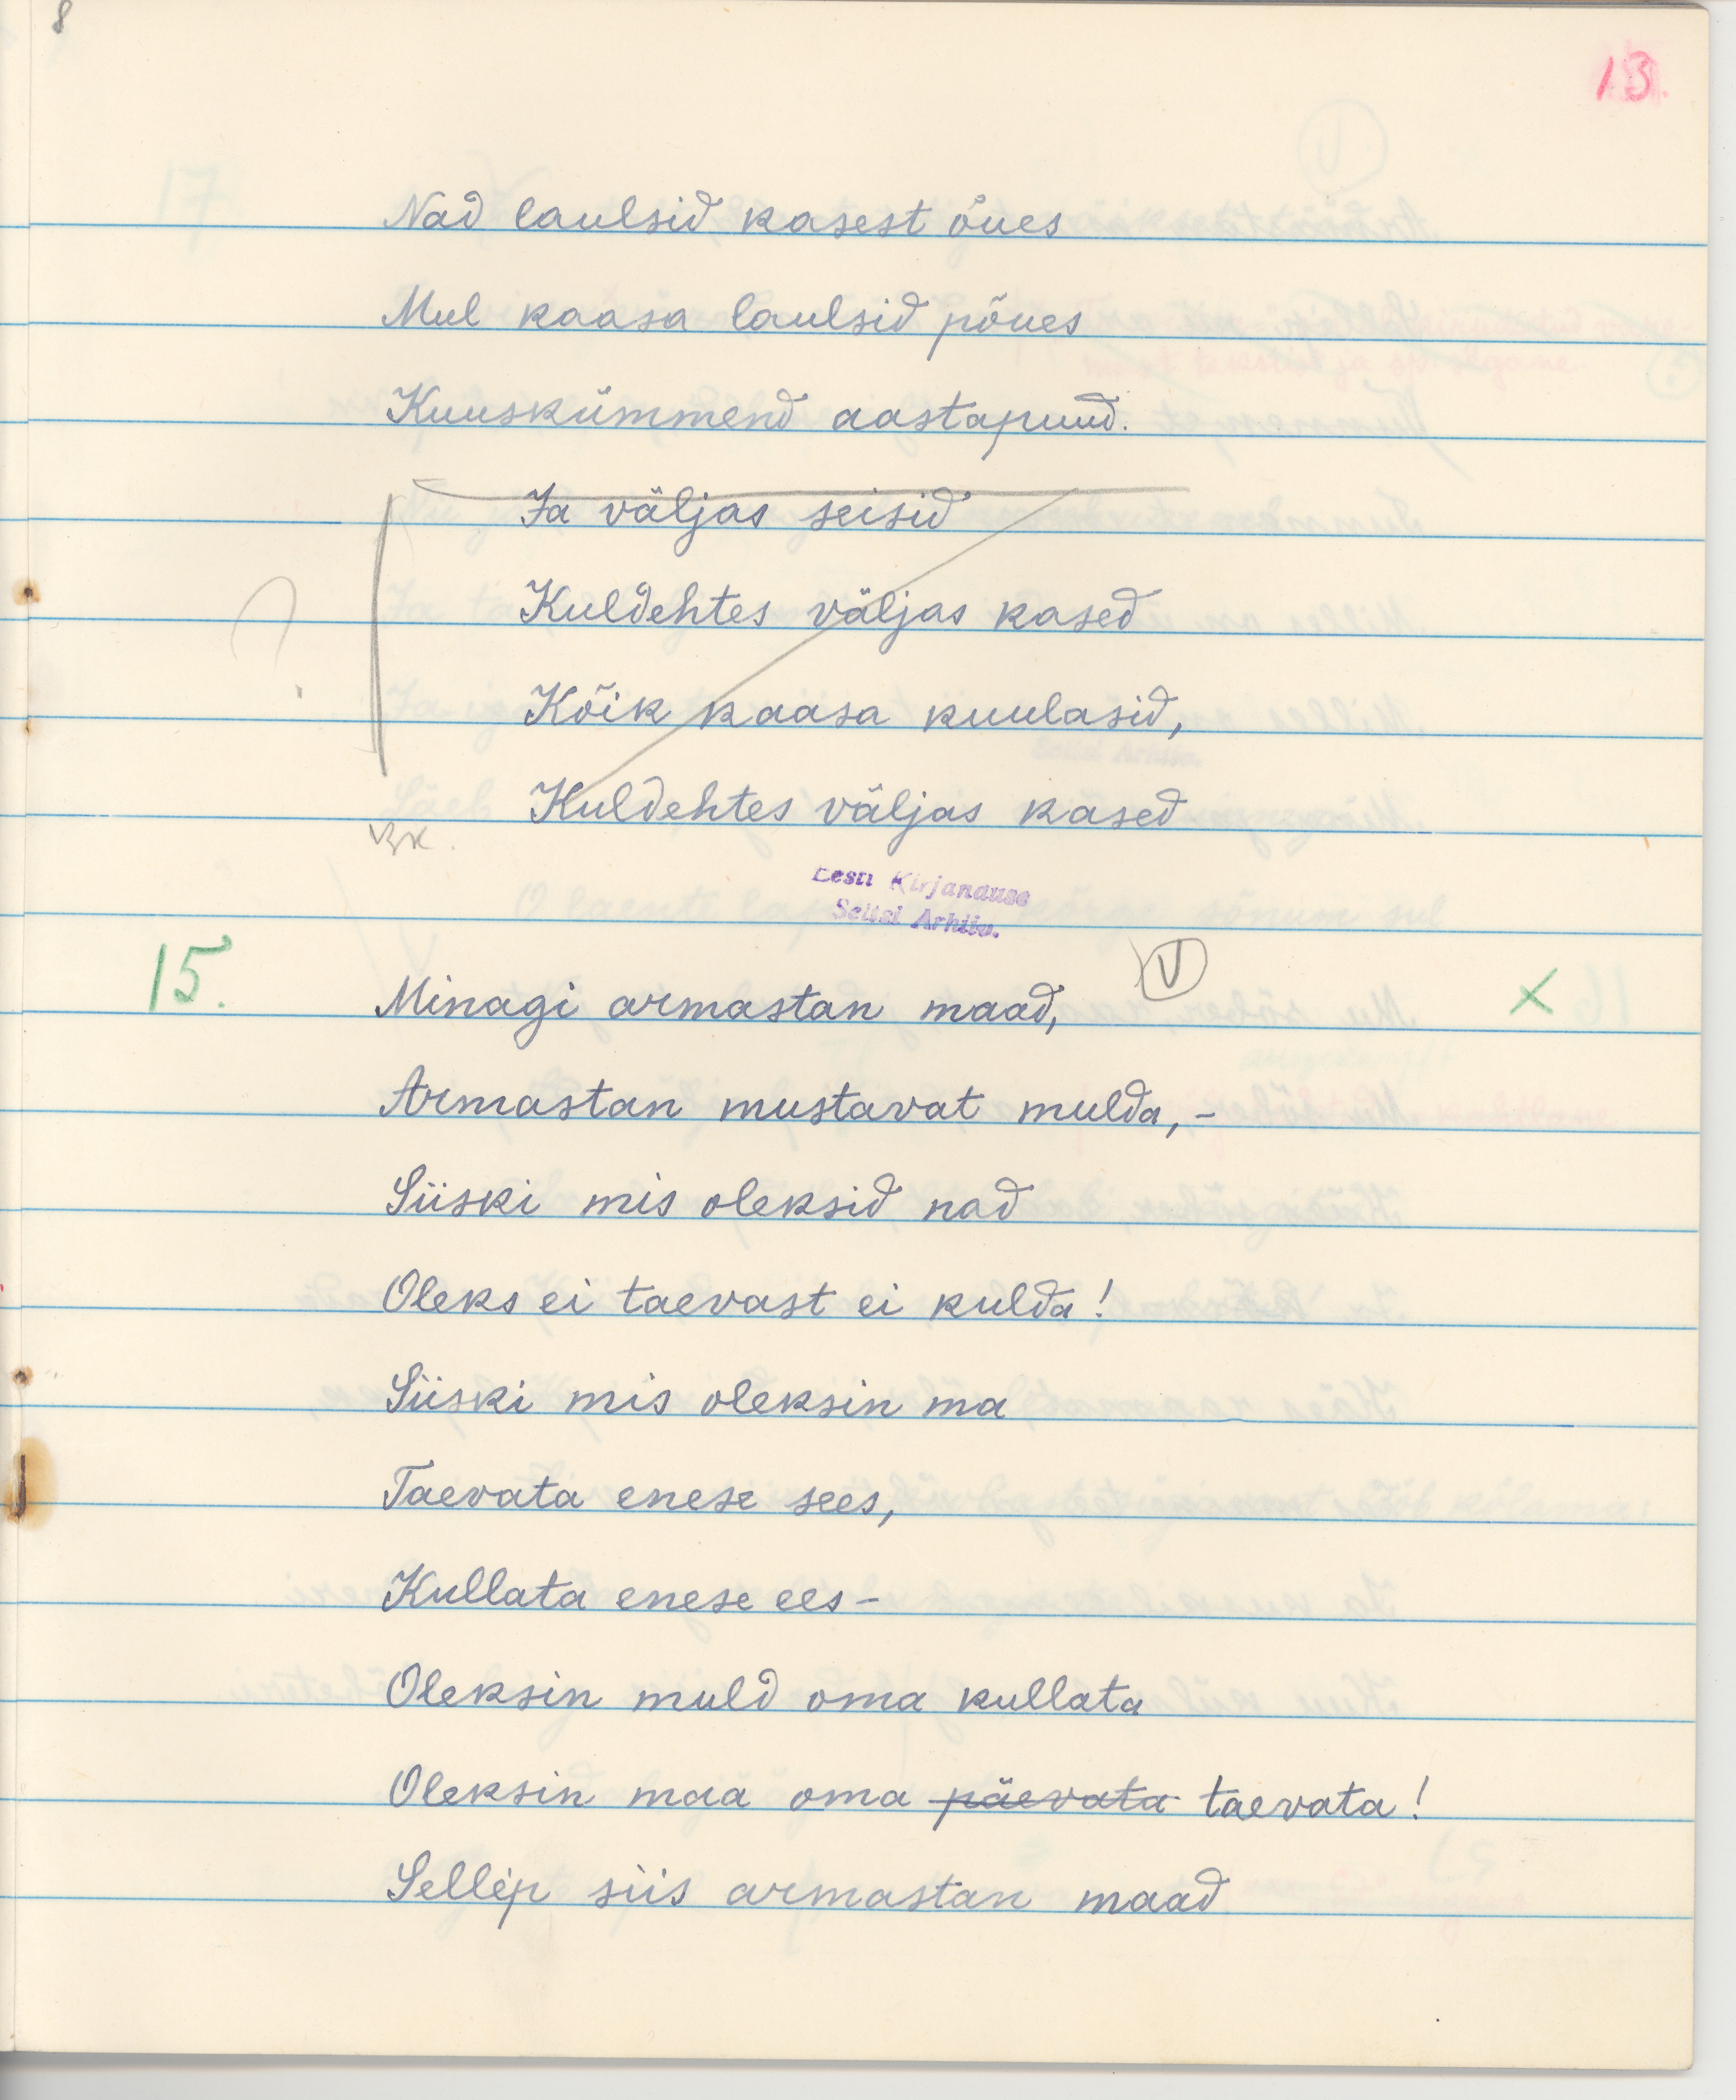 8
13.
Nad laulsid kasest õues
Mul kaasa laulsid põues
Kuuskümmend aastapuud.
Ja väljas seisid
Kuldehtes väljas kased
?
Kõik kaasa kuulasid,
Kuldehtes väljas kased
Eesti Kirjanduse
Seltsi Arhiiv.
V
15.
Minagi armastan maad,
x
Armastan mustavat mulda, -
Siiski mis oleksid nad
Oleks ei taevast ei kulda!
Siiski mis oleksin ma
Taevata enese sees,
Kullata enese ees -
Oleksin muld oma kullata
Oleksin maa oma päevata taevata!
Sellep siis armastan maad